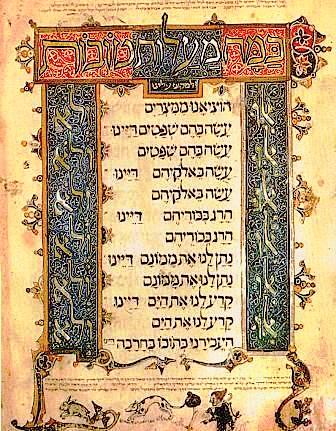 כמה מעלות טובות
למקום עלינו
הוציאנו ממצרים
עשה בהם שפטים דיינו
עשה בהם שפטים
עשה באלקיהם דיינו
עשה באלקיהם
הרג בכוריהם דיינו
הרג בכוריהם
נתן לנו את ממונם דיינו
נתן לנו את ממונם
קרע לנו את הים דיינו
קרע לנו את הים
העבירנו בתוכו בחרבה